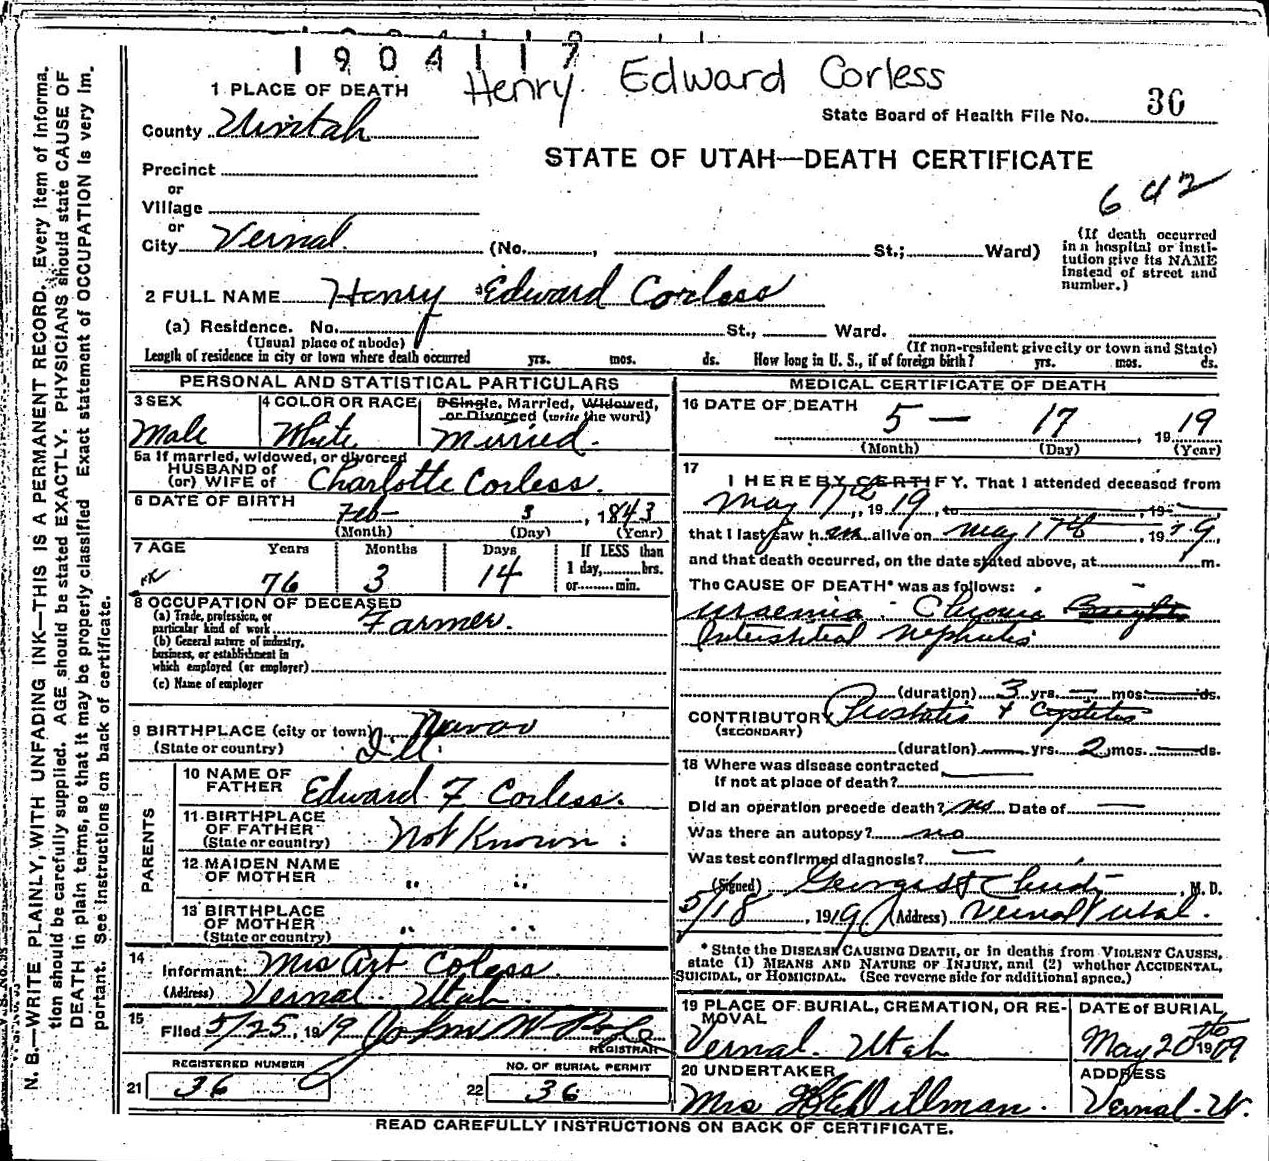 1904117
Henry Edward Corless
1 PLACE OF DEATH
State Board of Health File No. 36
County Uintah
STATE OF UTAH—DEATH CERTIFICATE
Precinct
642
or
Village
or
City Vernal (No. , St.; Ward)
(If death occurred in a hospital or institution give its NAME instead of street and number.)
2 FULL NAME Henry Edward Corless
(a) Residence. No. St., Ward.
(Usual place of abode) (If non-resident give city or town and State)
Length of residence in city or town where death occurred yrs. mos. ds. How long in U. S., if of foreign birth? yrs. mos. ds.
PERSONAL AND STATISTICAL PARTICULARS
3 SEX Male
4 COLOR OR RACE White
5 Single, Married, Widowed, or Divorced (write the word) Married.
5a If married, widowed, or divorced
HUSBAND of
(or) WIFE of Charlotte Corless.
6 DATE OF BIRTH Feb- 3, 1843
(Month) (Day) (Year)
7 AGE Years Months Days If LESS than
76 3 14 1 day, hrs.
or min.
8 OCCUPATION OF DECEASED
(a) Trade, profession, or
particular kind of work Farmer.
(b) General nature of industry,
business, or establishment in
which employed (or employer)
(c) Name of employer
9 BIRTHPLACE (city or town) Nauvoo
(State or country) Ill.
PARENTS
10 NAME OF
FATHER Edward F Corless.
11 BIRTHPLACE
OF FATHER
(State or country) Not Known :
12 MAIDEN NAME
OF MOTHER " "
13 BIRTHPLACE
OF MOTHER
(State or country) " "
14
Informant Mrs Art Coless
(Address) Vernal Utah
15
Filed 5/25, 1919 John W
REGISTRAR
REGISTERED NUMBER NO. OF BURIAL PERMIT
21 36 22 36
MEDICAL CERTIFICATE OF DEATH
16 DATE OF DEATH 5 — 17, 1919
(Month) (Day) (Year)
17
I HEREBY CERTIFY, That I attended deceased from
May 17th, 1919, to , 19
that I last saw h im alive on May 17th, 1919,
and that death occurred, on the date stated above, at m.
The CAUSE OF DEATH* was as follows:
uraemia : Chronic Brights
Interstitial Nephritis
(duration) 3 yrs. — mos. ds.
CONTRIBUTORY Prostatis + Cystitis
(SECONDARY)
(duration) yrs. 2 mos. ds.
18 Where was disease contracted
If not at place of death?
Did an operation precede death? no Date of —
Was there an autopsy? no
Was test confirmed diagnosis? —
(Signed) , M. D.
5/18, 1919 (Address) Vernal Utah.
*State the DISEASE CAUSING DEATH, or in deaths from VIOLENT CAUSES,
state (1) MEANS AND NATURE OF INJURY, and (2) whether ACCIDENTAL,
SUICIDAL, or HOMICIDAL. (See reverse side for additional space.)
19 PLACE OF BURIAL, CREMATION, OR RE-
MOVAL
Vernal. Utah
DATE of BURIAL
May 20th 1909
20 UNDERTAKER
Mrs Dillman.
ADDRESS
Vernal. Ut.
READ CAREFULLY INSTRUCTIONS ON BACK OF CERTIFICATE.
N. B.—WRITE PLAINLY, WITH UNFADING INK—THIS IS A PERMANENT RECORD. Every item of informa-
tion should be carefully supplied. AGE should be stated EXACTLY. PHYSICIANS should state CAUSE OF
DEATH in plain terms, so that it may be properly classified. Exact statement of OCCUPATION is very im-
portant. See instructions on back of certificate.